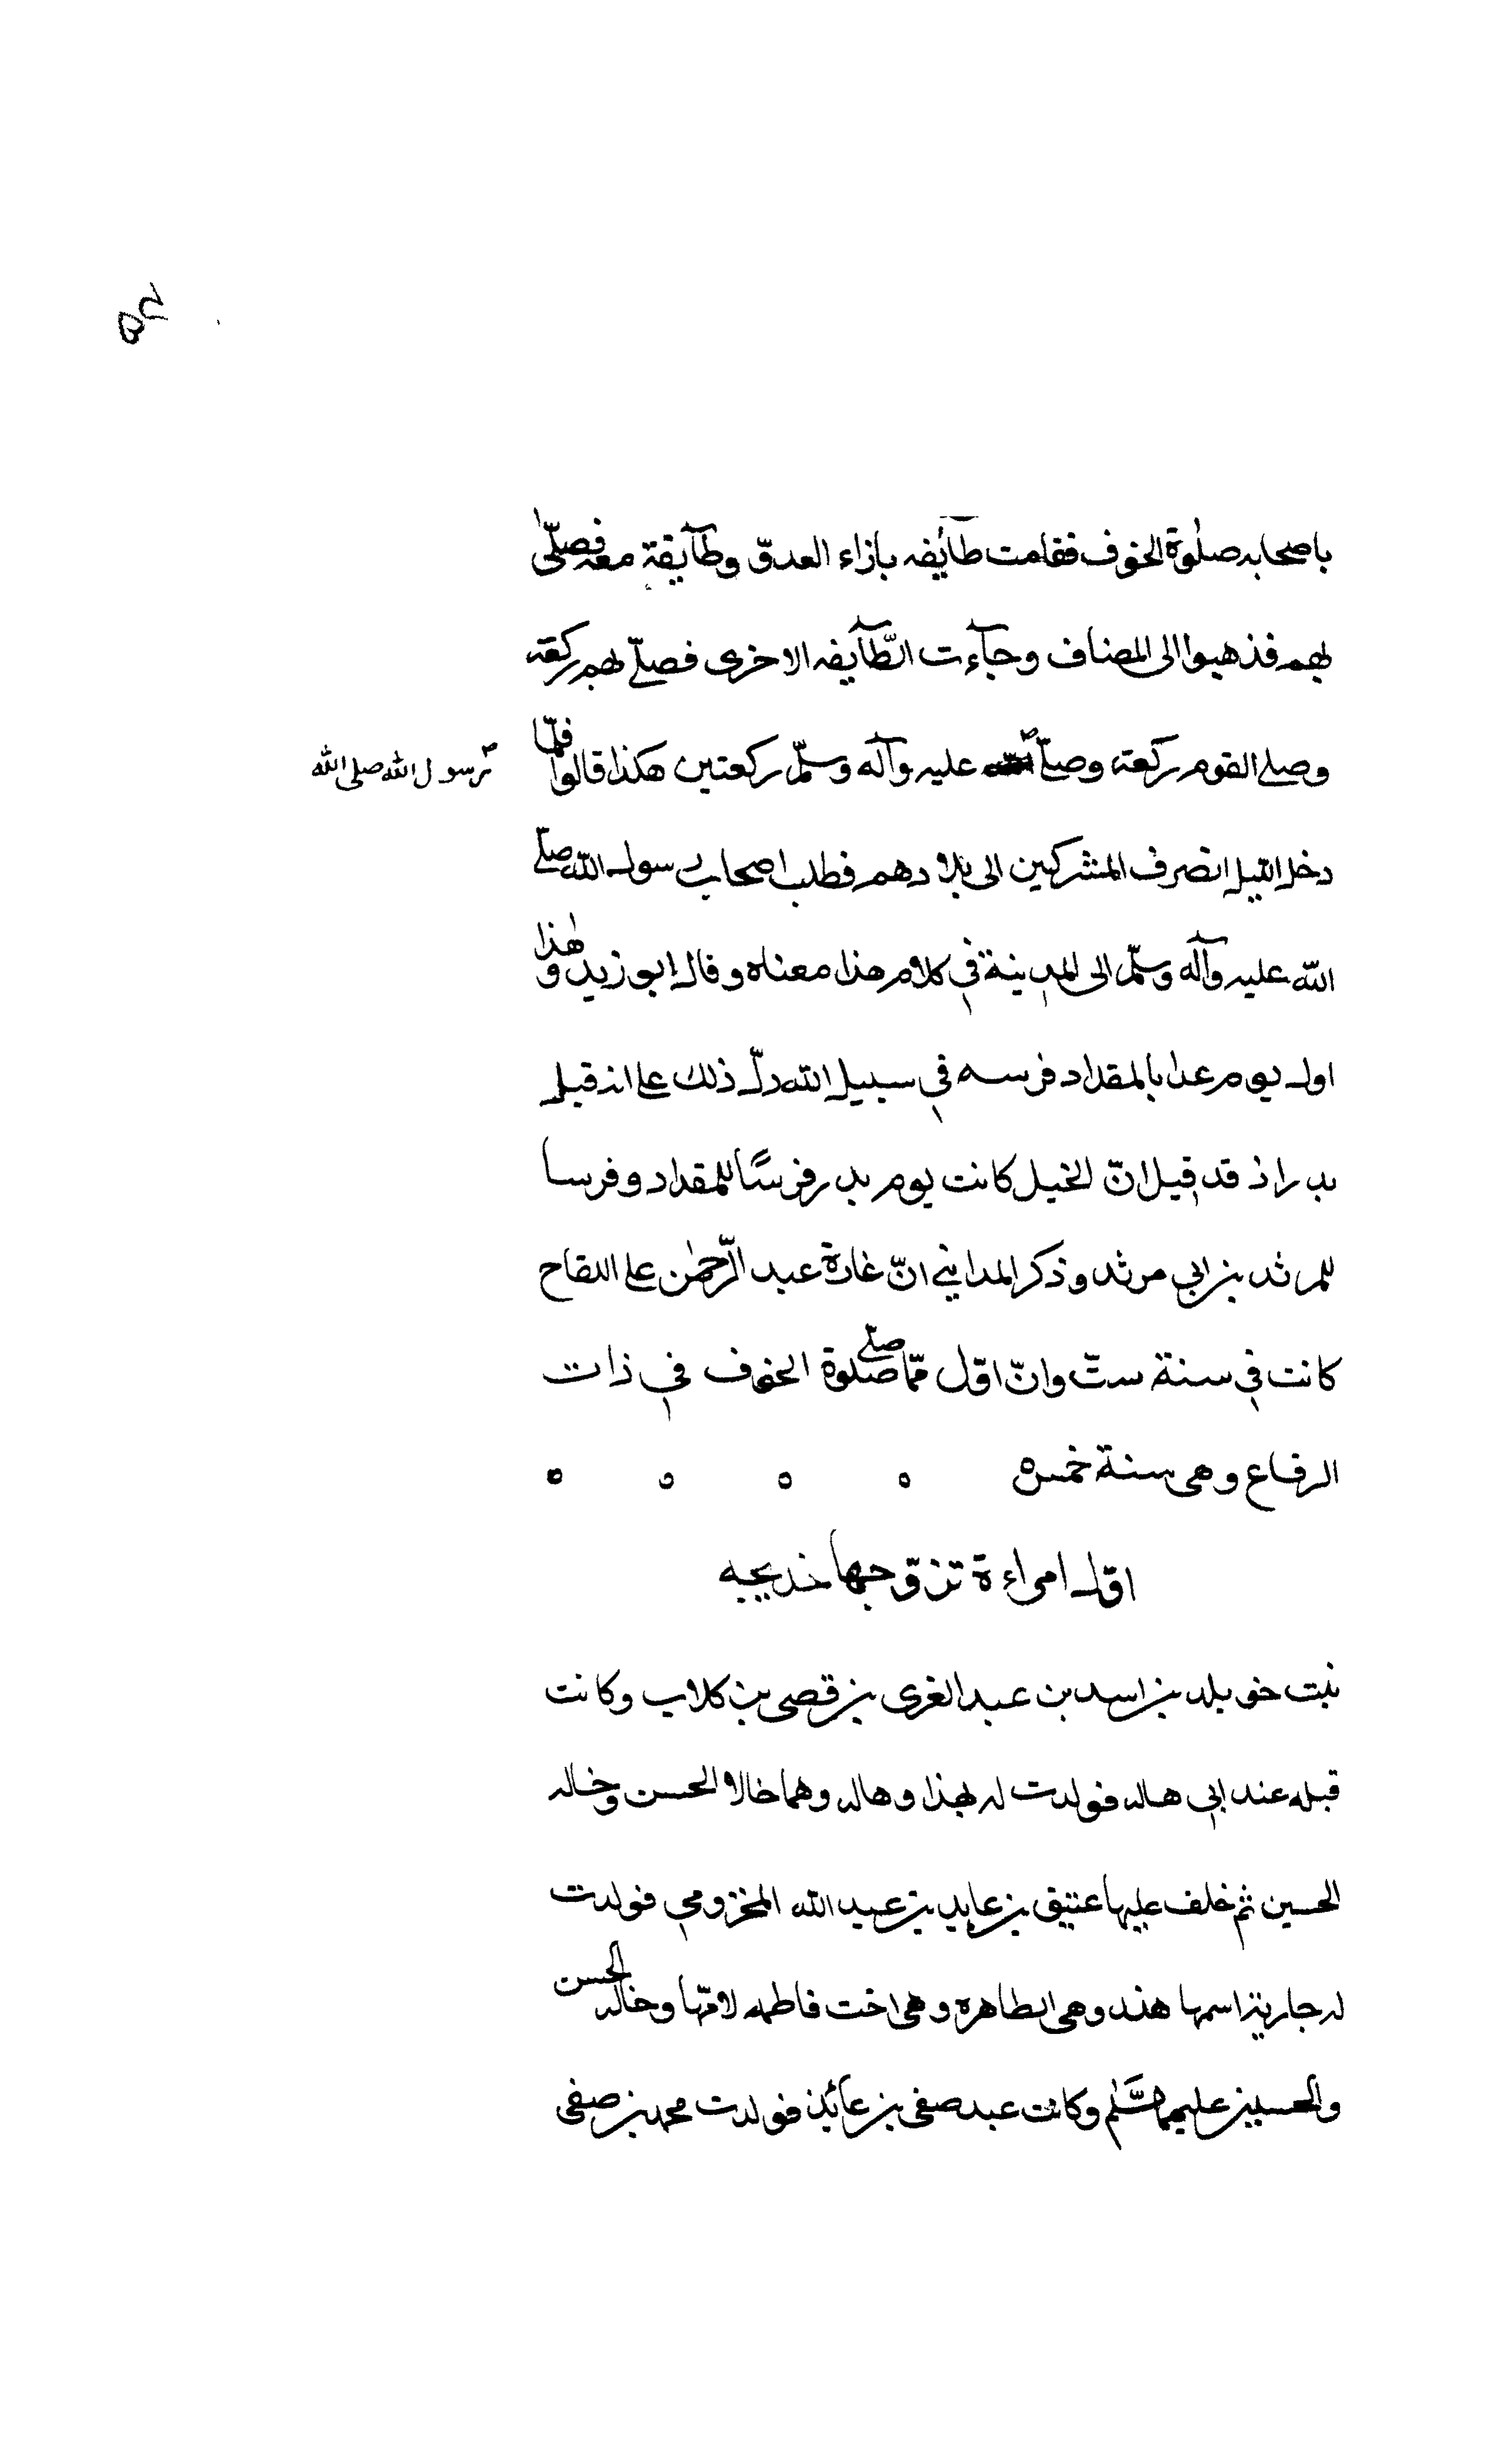 ۵۲
باصحابه صلوٰة الخوف فقامت طآئفه بازاء العدوّ وطآيفة معه فصلّى
بهم فذهبوا الى المصاف وجآءت الطّآيفه الاخرى فصلّى بهم ركعة
وصلى القوم ركعة وصلّى عليه وآله وسلّم ركعتين هكذا قالوا فلمّا
رسول الله صلى الله
دخل الليل انصرف المشركين الى بلادهم فطلب اصحاب رسول الله صلّى
الله عليه وآله وسلّم الى المدينة في كلام هذا معناه وقال ابو زيد وهٰذا
اول يوم عدا بالمقداد فرسه في سبيل الله دلّ ذلك على انه قبل
بدر اذ قد قيل انّ الخيل كانت يوم بدر فرسًا للمقداد وفرسا
لمرثد بن ابي مرثد وذكر المدايني انّ غارة عبد الرّحمٰن على اللقاح
كانت في سنة ستّ وانّ اوّل ممّا صلّى صلوة الخوف في ذات
الرقاع وهى سنة خمس ه ه ه ه ه
اوّل امراءة تزوّجها خديجه
بنت خويلد بن اسد بن عبد الغرى بن قصى بن كلاب وكانت
قبله عند ابي هاله فولدت له هندا وهاله وهما خالا الحسن وخاله
الحسين ثم خلف عليها عتيق بن عايد بن عبد الله المخزومي فولدت
له جارية اسمها هند وهى الطاهره وهى اخت فاطمه لامّها وخاله الحسن
والحسين عليهما السَّلٰم وكانت عبد صفى بن عائذ فولدت محمد بن صفى